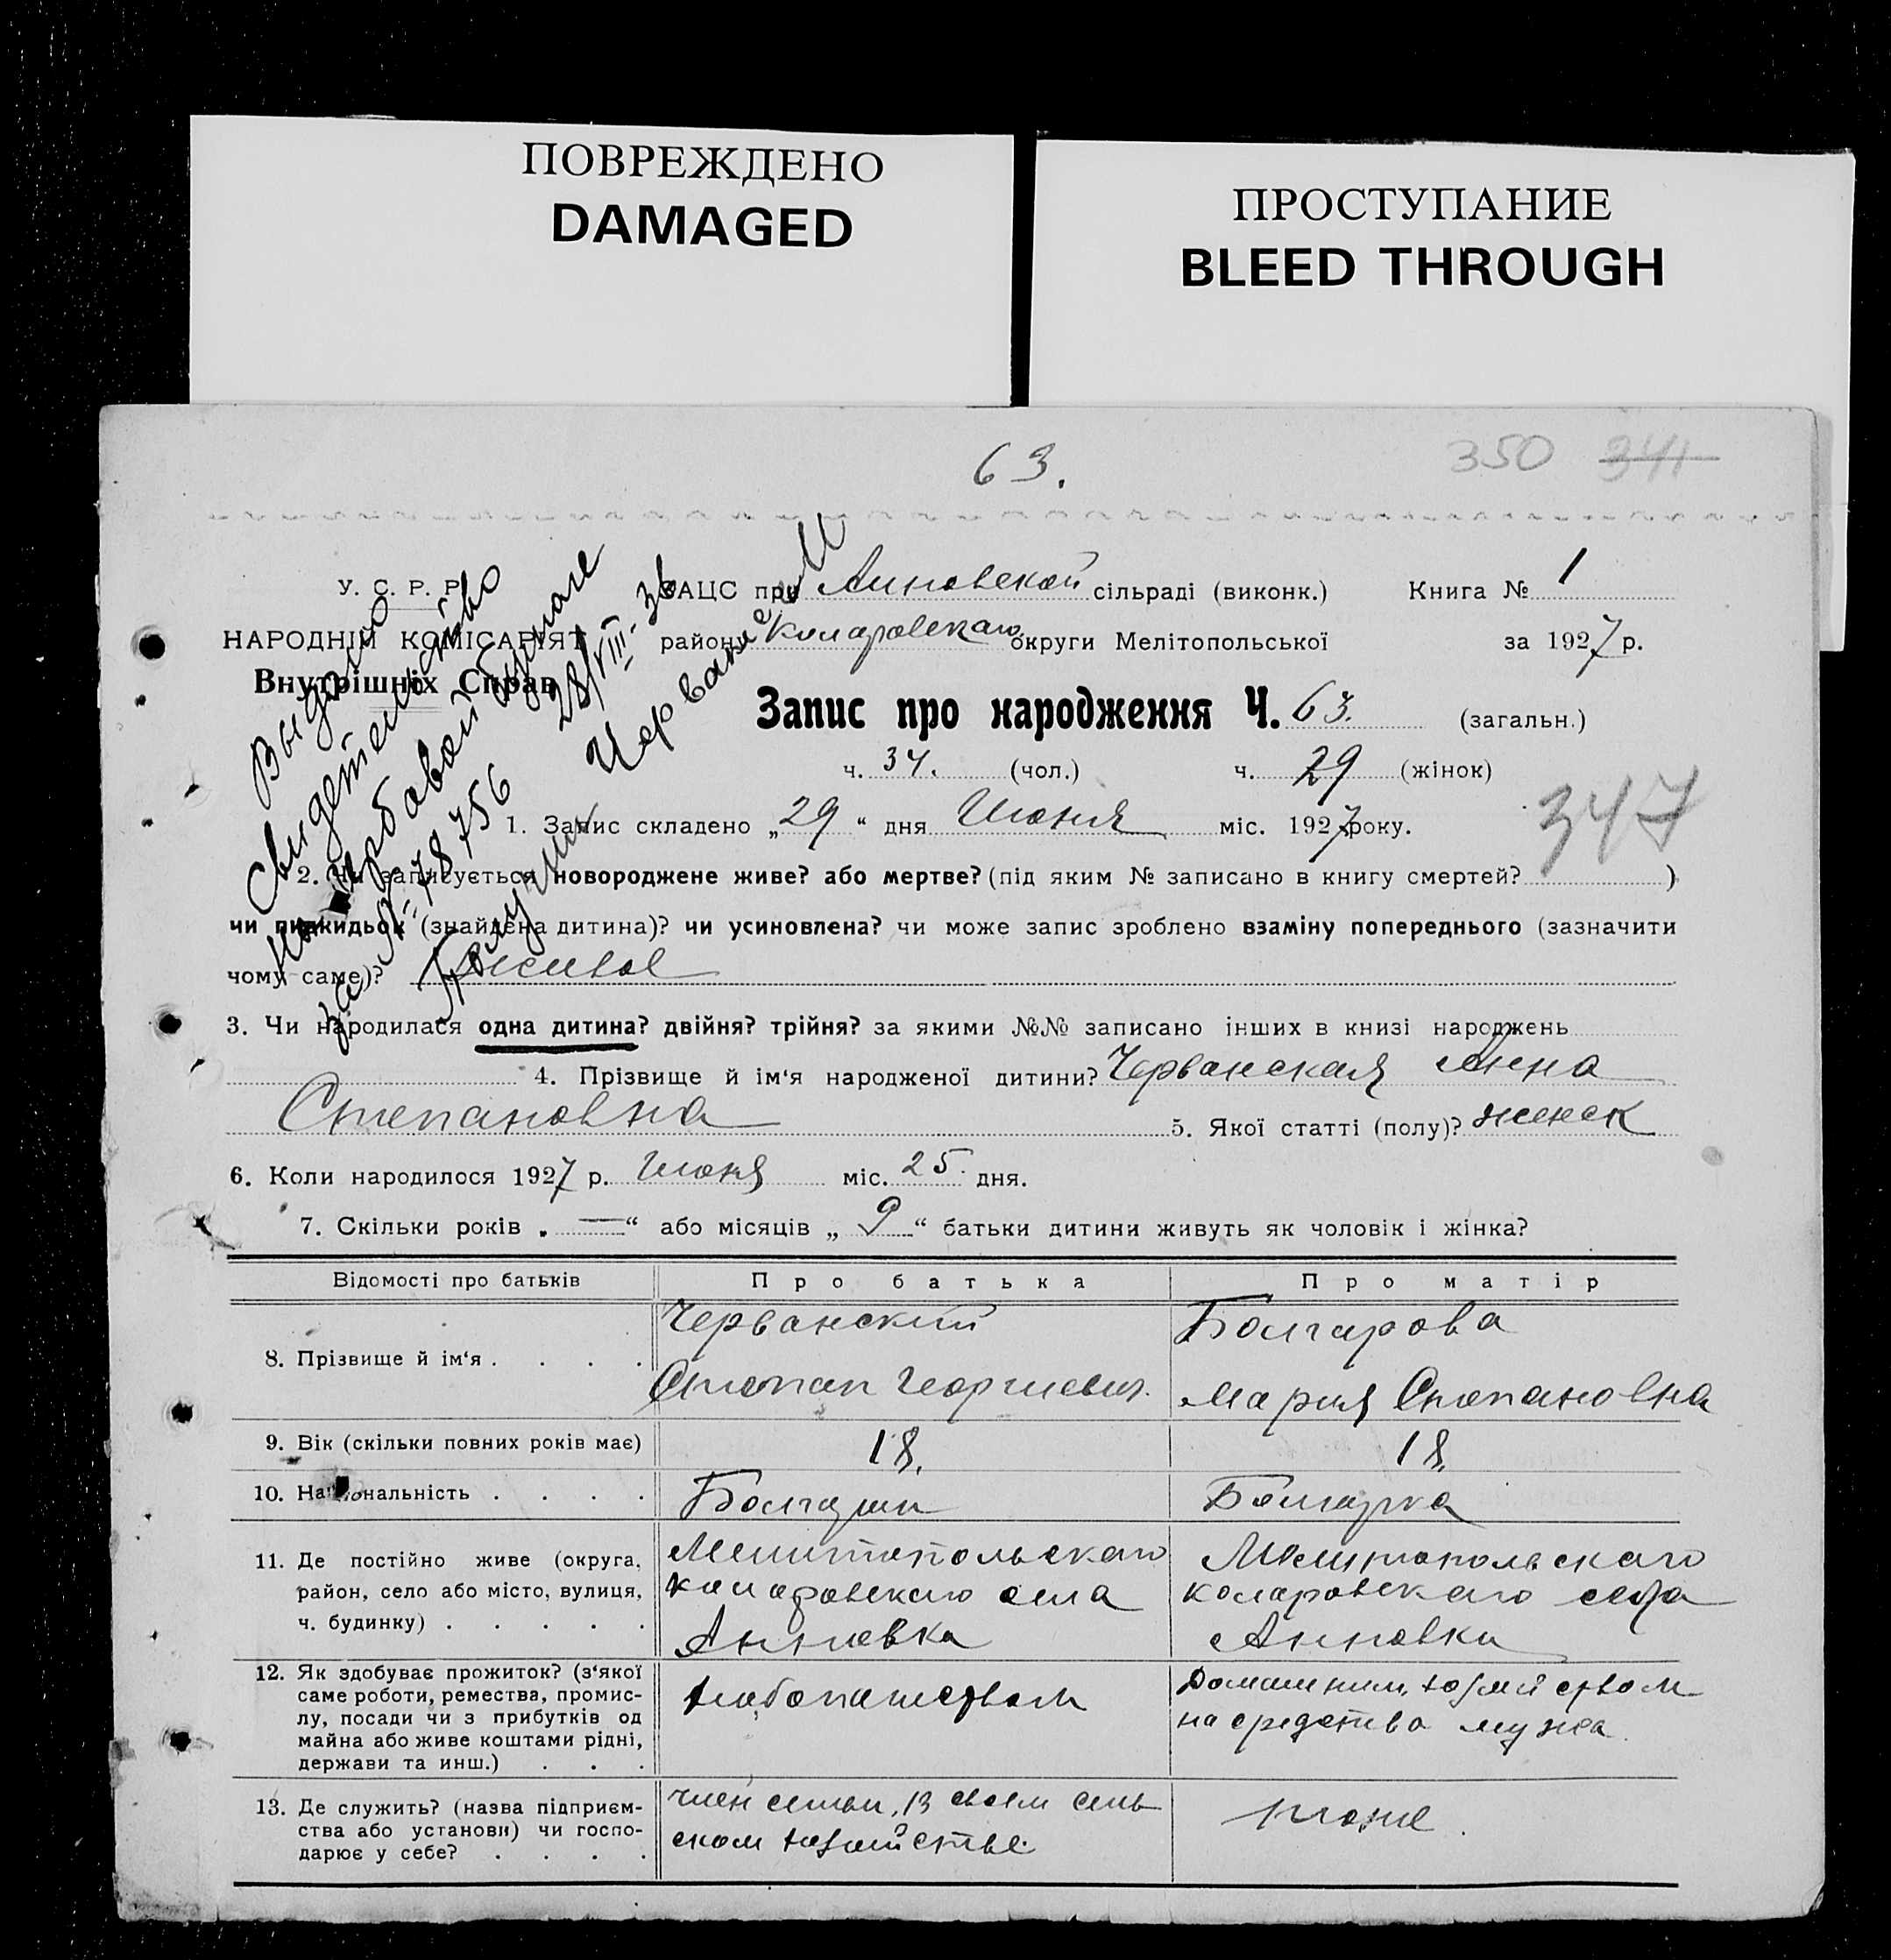 ПОВРЕЖДЕНО
DAMAGED
ПРОСТУПАНИЕ
BLEED THROUGH
63.
350 341
У. С. Р. Р.
НАРОДНІЙ КОМІСАРІЯТ
Внутрішніх Справ
Выдано
Свидетельство
на гербовой бумаге
за №-78756 28/VIII-36
Получил Червани
ЗАЦС при Анновской сільраді (виконк.) Книга № 1
району Коларовскаго округи Мелітопольської за 1927 р.
Запис про народження Ч. 63. (загальн.)
ч. 34. (чол.) ч. 29 (жінок)
347
1. Запис складено „29“ дня Июня міс. 1927 року.
2. Чи записується новороджене живе? або мертве? (під яким № записано в книгу смертей? )
чи підкидьок (знайдена дитина)? чи усиновлена? чи може запис зроблено взаміну попереднього (зазначити
чому саме)? живое
3. Чи народилася одна дитина? двійня? трійня? за якими №№ записано інших в книзі народжень
4. Прізвище й ім‘я народженої дитини? Черванская Анна
Степановна 5. Якої статті (полу)? женск
6. Коли народилося 1927 р. Июня міс. 25 дня.
7. Скільки років „—“ або місяців „9“ батьки дитини живуть як чоловік і жінка?
Відомості про батьків Про батька Про матір
8. Прізвище й ім‘я . . . . Черванский Степан Георгиевич. Болгарова Мария Степановна
9. Вік (скільки повних років має) 18. 18.
10. Національність . . . . Болгарин Болгарка
11. Де постійно живе (округа,
район, село або місто, вулиця,
ч. будинку) . . . . .
Мелитопольскаго
Коларовскаго села
Анновка
Мелитопольскаго
Коларовскаго села
Анновки
12. Як здобуває прожиток? (з‘якої
саме роботи, ремества, промис-
лу, посади чи з прибутків од
майна або живе коштами рідні,
держави та инш.) . . .
хлебопашеством
Домашним хозяйством
на средства мужа.
13. Де служить? (назва підприєм-
ства або установи) чи госпо-
дарює у себе? . . . .
член семьи, В своем сель
ском хозяйстве.
тоже.